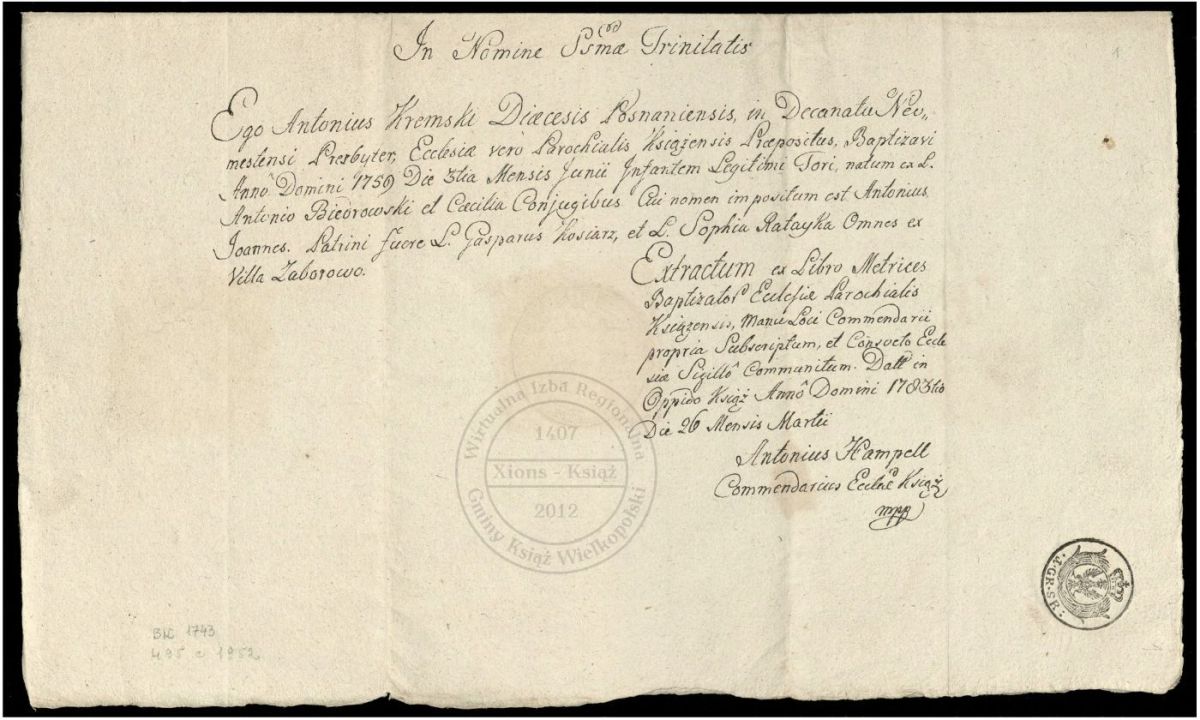 In Nomine Ssmæ Trinitatis
Ego Antonius Kremski Diæcesis Posnaniensis, in Decanatu Neo„
mestensi Presbyter, Ecclesiæ vero Parochialis Książensis Præpositus, Baptizavi
Anno Domini 1759 Die 3tia Mensis Junii Infantem Legitimi Tori, natum ex L.
Antonio Biedrowski et Cæcilia Conjugibus Cui nomen impositum est Antonius
Joannes. Patrini fuere L. Gasparus Kosiarz, et L. Sophia Ratayka Omnes ex
Villa Zaborowo.
Extractum ex Libro Metrices
Baptizator Ecclesiæ Parochialis
Książensis, Manu Loci Commendarii
propria Subscriptum, et Consveto Eccle
siæ Sigillo Communitum. Datt in
Oppido Książ Anno Domini 1783tio
Die 26 Mensis Martii
Antonius Hampell
Commendarius Ecclæ Książ
mpp
Wirtualna Izba Regionalna
1407
Xions - Książ
2012
Gminy Książ Wielkopolski
J.GR.SR:
1743
495 c 1952